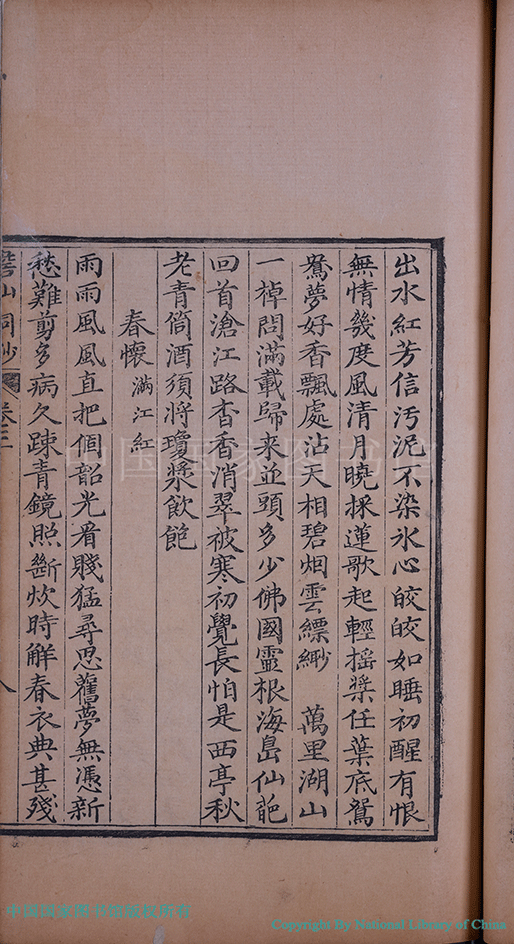 出水紅芳信汚泥不染氷心皎皎如睡初醒有恨
無情幾度風清月曉採蓮歌起輕搖槳任葉底鴛
鴦夢好香飄處沾天相碧烟雲縹緲 萬里湖山
一棹問滿載歸來並頭多少佛國靈根海島仙葩
回首滄江路杳香消翠被寒初覺長怕是西亭秋
老青筩酒須將瓊漿飲飽
春懷 滿江紅
雨雨風風直把個韶光看賤猛尋思舊夢無憑新
愁難剪多病久踈青鏡照斷炊時解春衣典甚殘
山詞鈔 卷三 八
中国国家图书馆
中国国家图书馆版权所有
Copyright By National Library of China